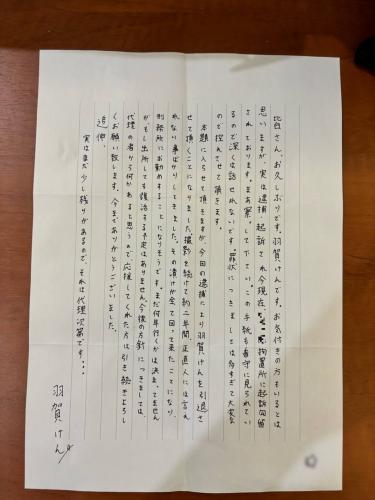 皆さん、お久しぶりです。羽賀けんです。お気付きの方もいるとは
思いますが、実は逮捕、起訴され今現在、拘置所に起訴勾留
されております。まぁ察して下さい。この手紙も看守に見られてい
るので深くは話せれないです。罪状につきましては今すぎて大変な
ので控えさせて頂きます。
本題に入らせて頂きますが、今回の逮捕により羽賀けんを引退さ
せて頂くことになりました。撮影を続けて約二年間、正直人には言え
れない事ばかりしてきました。その漬けが全て回って来たことになり、
刑務所にお勤めすることになりそうです。まだ何年行くかは決まってません
が、もし出所しても復活する予定はありません。今後の方針につきましては、
代理の者から何かあると思うので、応援してくれた方は引き続きよろし
くお願い致します。今までありがとうございました。
追伸、
実はまだ少し残りがあるので、それは代理次第です・・・
羽賀けん